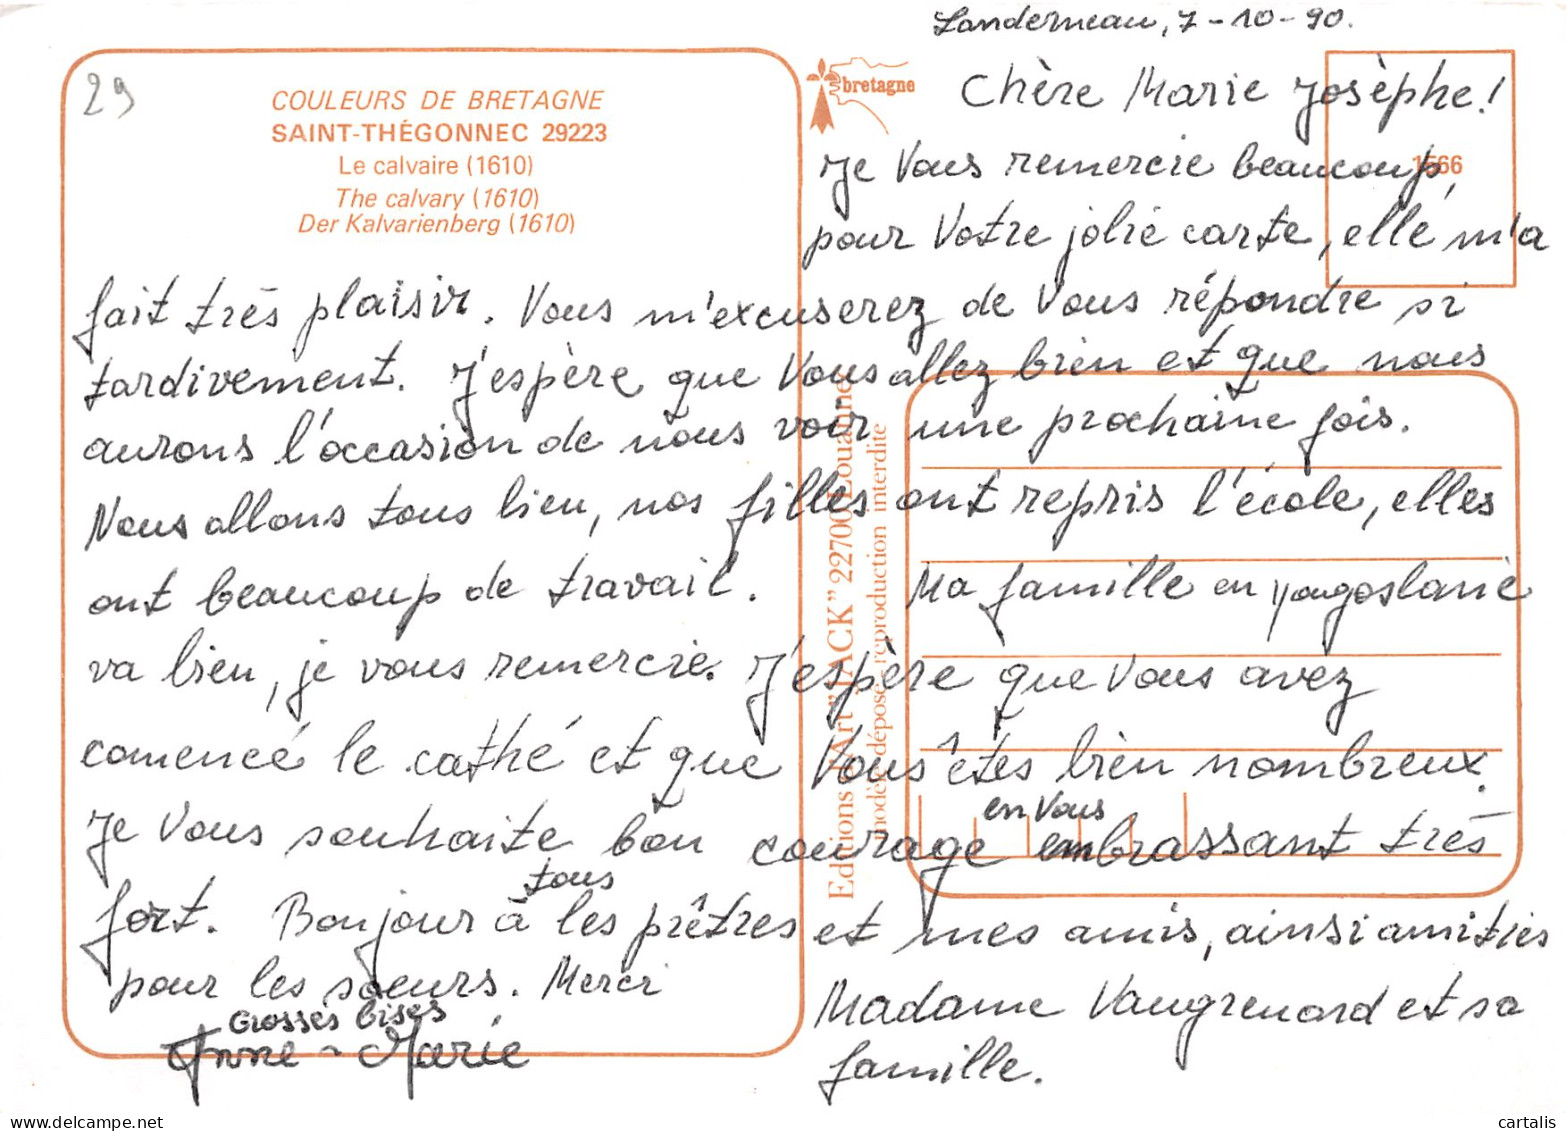 Landerneau, 7-10-90.
29
COULEURS DE BRETAGNE
SAINT-THÉGONNEC 29223
Le calvaire (1610)
The calvary (1610)
Der Kalvarienberg (1610)
bretagne
1566
Chère Marie Josèphe!
Je Vous remercie beaucoup,
pour Votre jolie carte, elle m'a
fait très plaisir. Vous m'excuserez de Vous répondre si
tardivement. J'espère que Vous allez bien et que nous
aurons l'occasion de nous voir une prochaine fois.
Nous allons tous bien, nos filles ont repris l'école, elles
ont beaucoup de travail. Ma famille en Yougoslavie
va bien, je vous remercie. J'espère que Vous avez
comencé le cathé et que Vous êtes bien nombreux.
Je Vous souhaite bon courage en Vous embrassant très
fort. Bonjour à tous les prêtres et mes amis, ainsi amitiés
pour les soeurs. Merci Madame Vaugrenard et sa
famille.
Grosses bises
Anne-Marie
Editions d'Art "JACK" 22700 Louannec
modèle déposé, reproduction interdite
cartalis